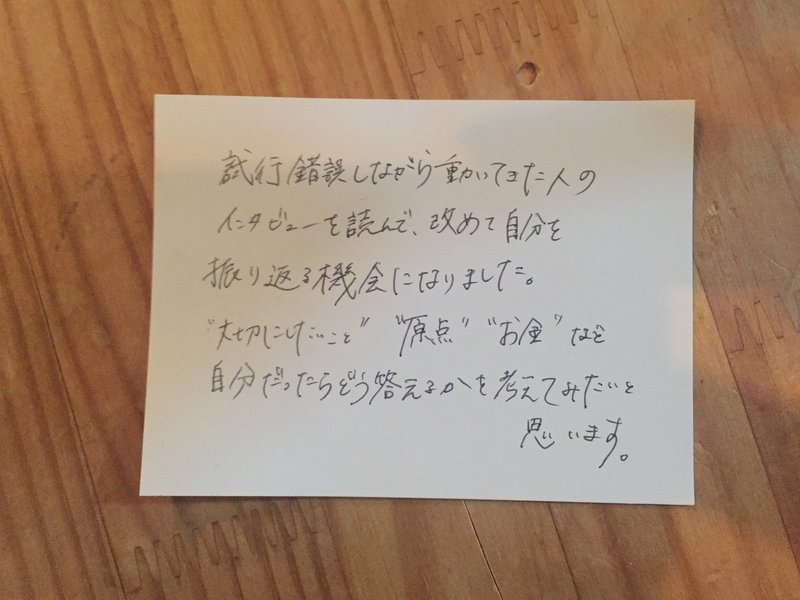 試行錯誤しながら動いてきた人の
インタビューを読んで、改めて自分を
振り返る機会になりました。
"大切にしたいこと" "原点" "お金" など
自分だったらどう答えるかを考えてみたいと
思います。